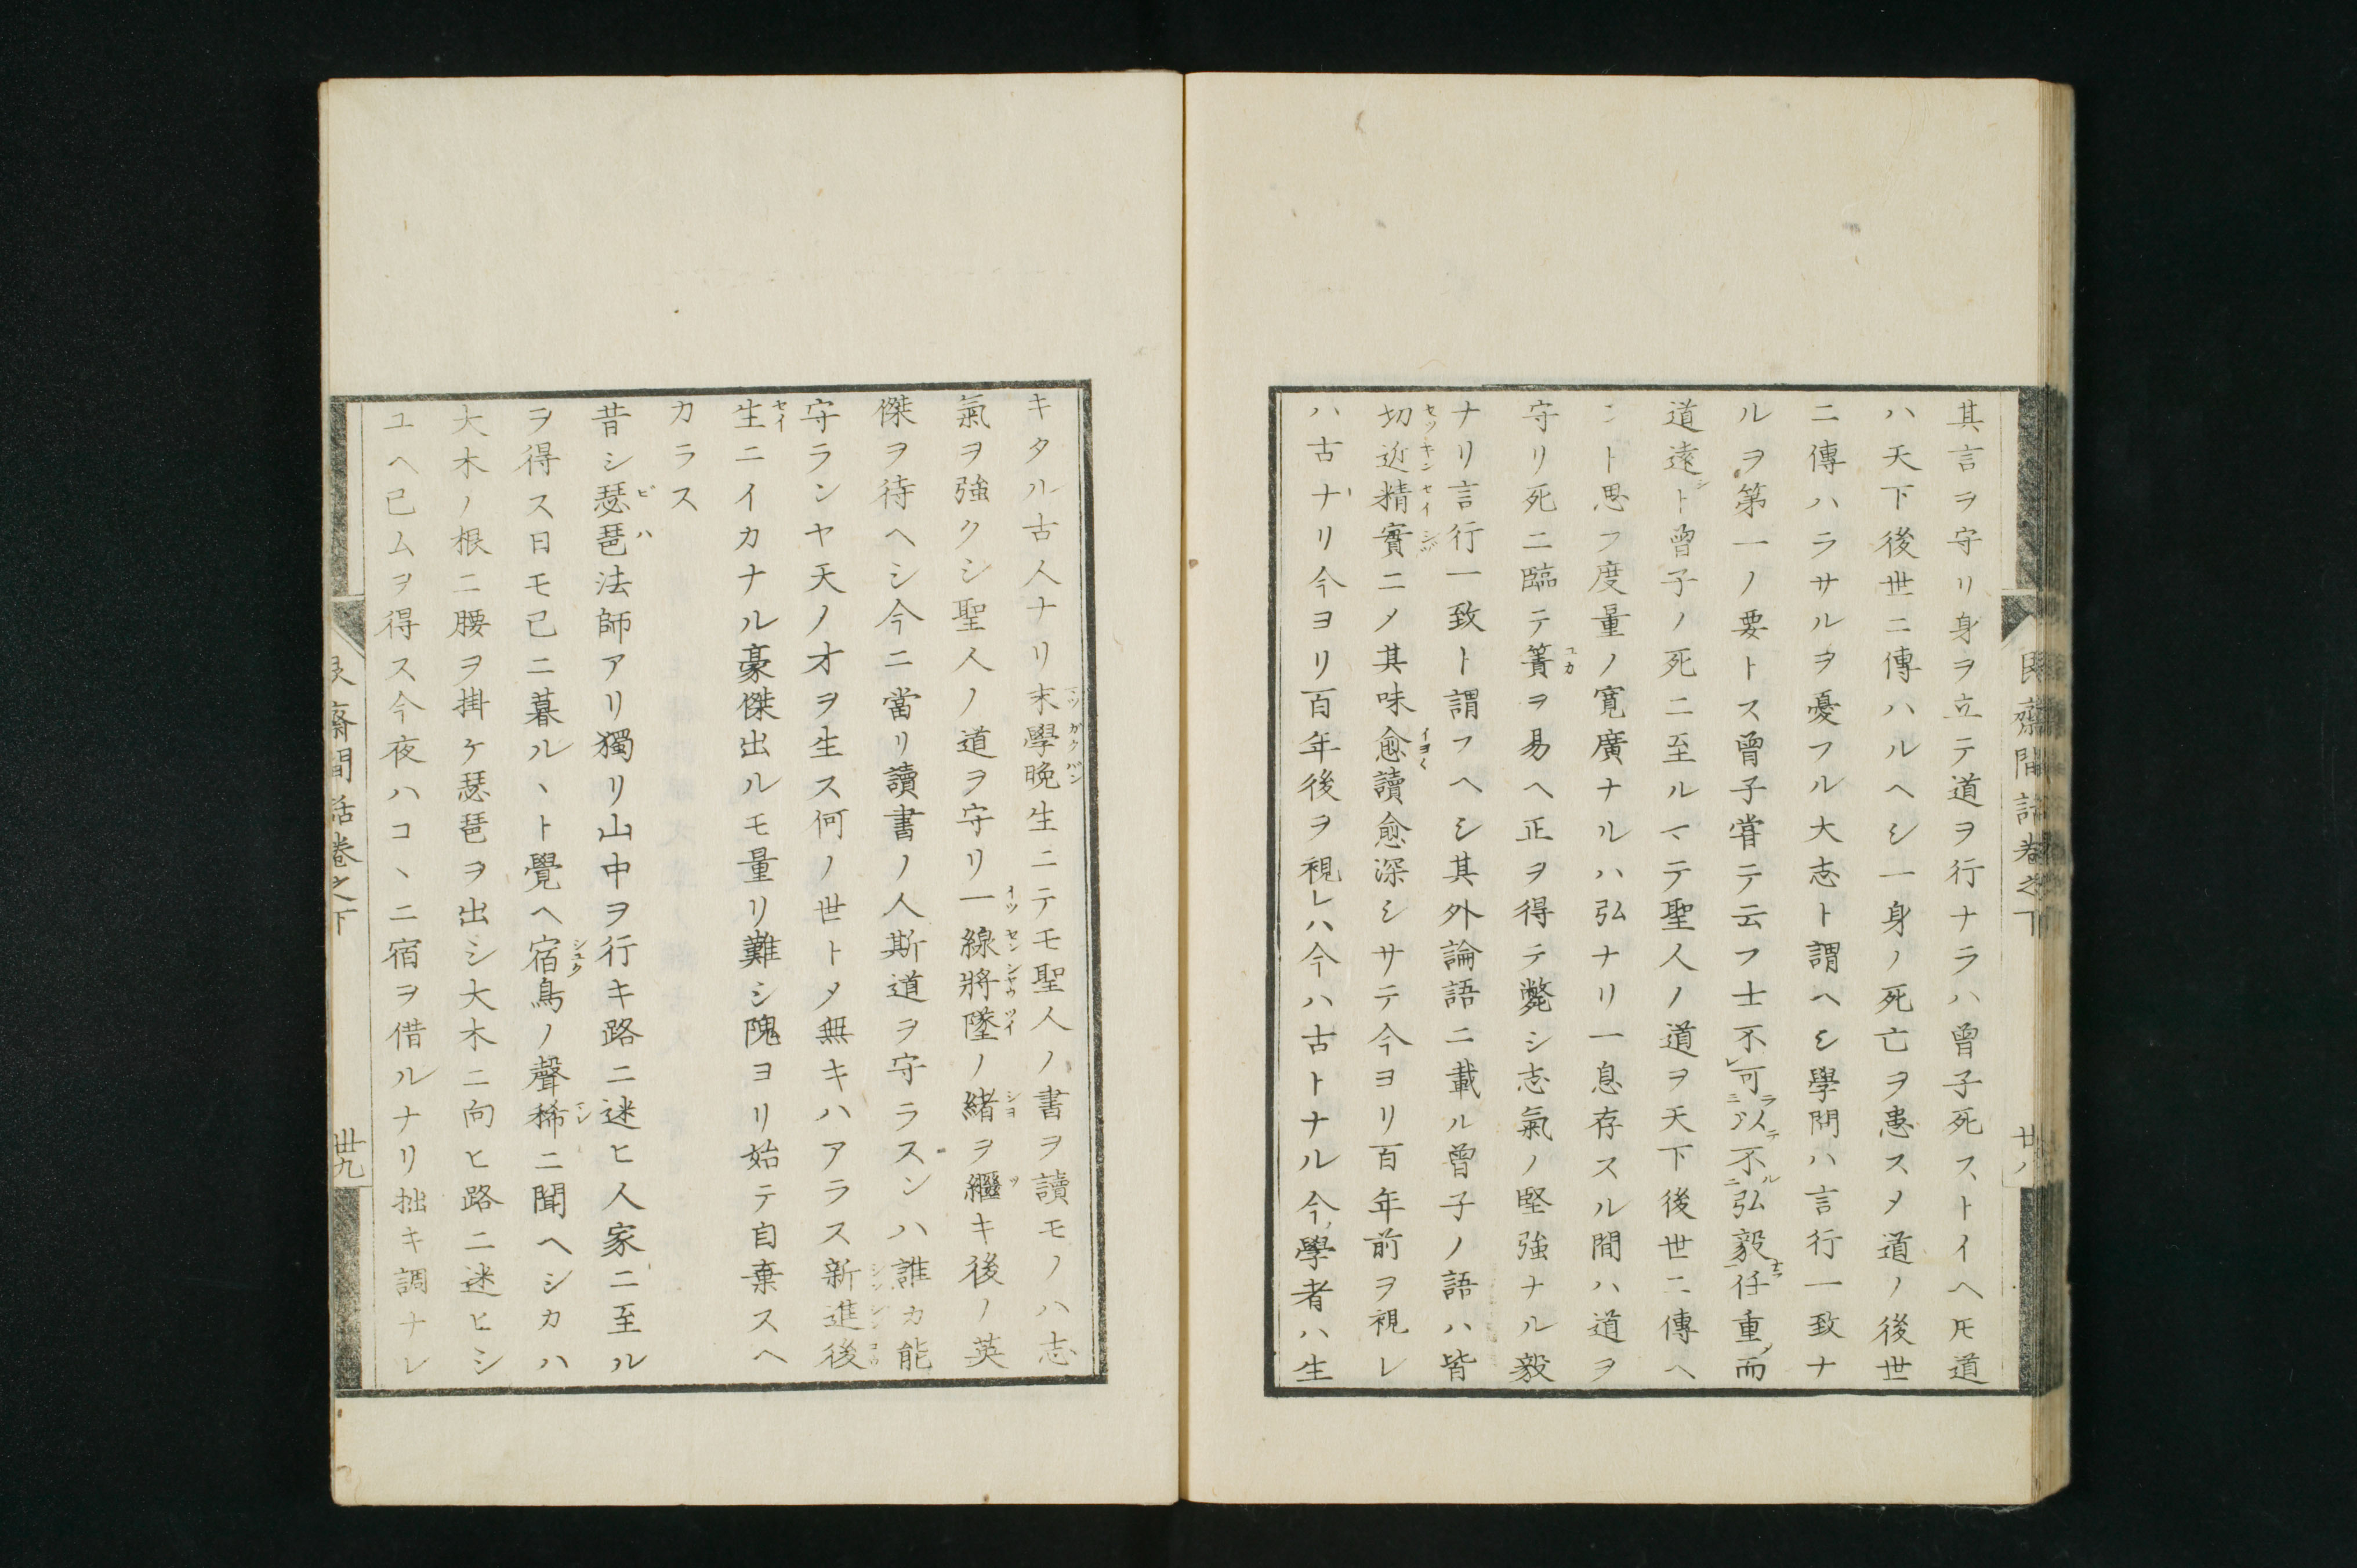 其言ヲ守リ身ヲ立テ道ヲ行ナラハ曾子死ストイヘ𪜈道
ハ天下後世ニ傳ハルヘシ一身ノ死亡ヲ患スメ道ノ後世
ニ傳ハラサルヲ憂フル大志ト謂ヘシ學問ハ言行一致ナ
ルヲ第一ノ要トス曾子甞テ云フ士不可以不弘毅任重而
道遠ト曾子ノ死ニ至ルマテ聖人ノ道ヲ天下後世ニ傳ヘ
ント思フ度量ノ寛廣ナルハ弘ナリ一息存スル間ハ道ヲ
守リ死ニ臨テ簀ヲ易ヘ正ヲ得テ斃シ志氣ノ堅強ナル毅
ナリ言行一致ト謂フヘシ其外論語ニ載ル曾子ノ語ハ皆
切近精實ニメ其味愈讀愈深シサテ今ヨリ百年前ヲ視レ
ハ古ナリ今ヨリ百年後ヲ視レハ今ハ古トナル今學者ハ生
齋間話卷之下
廿八
キタル古人ナリ末學晩生ニテモ聖人ノ書ヲ讀モノハ志
氣ヲ強クシ聖人ノ道ヲ守リ一線將墜ノ緒ヲ繼キ後ノ英
傑ヲ待ヘシ今ニ當リ讀書ノ人斯道ヲ守ラスンハ誰カ能
守ランヤ天ノ才ヲ生ス何ノ世トメ無キハアラス新進後
生ニイカナル豪傑出ルモ量リ難シ隗ヨリ始テ自棄スヘ
カラス
昔シ瑟琶法師アリ獨リ山中ヲ行キ路ニ迷ヒ人家ニ至ル
ヲ得ス日モ已ニ暮ルヽト覺ヘ宿鳥ノ聲稀ニ聞ヘシカハ
大木ノ根ニ腰ヲ掛ケ瑟琶ヲ出シ大木ニ向ヒ路ニ迷ヒシ
ユヘ已ムヲ得ス今夜ハコヽニ宿ヲ借ルナリ拙キ調ナレ
齋間話卷之下
廿九